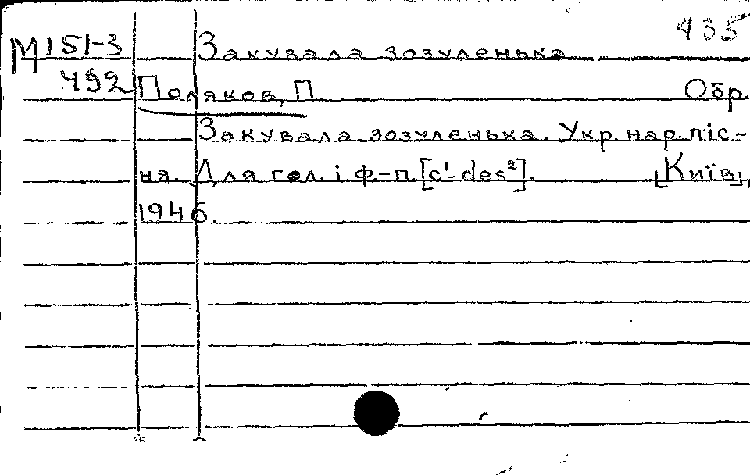 435
М151-3 Закувала зозуленька
492 Поляков, П Обр
Закувала зозуленька. Укр. нар. піс-
ня. Для гол. і ф-п. [c¹-des²]. [Київ],
1946.